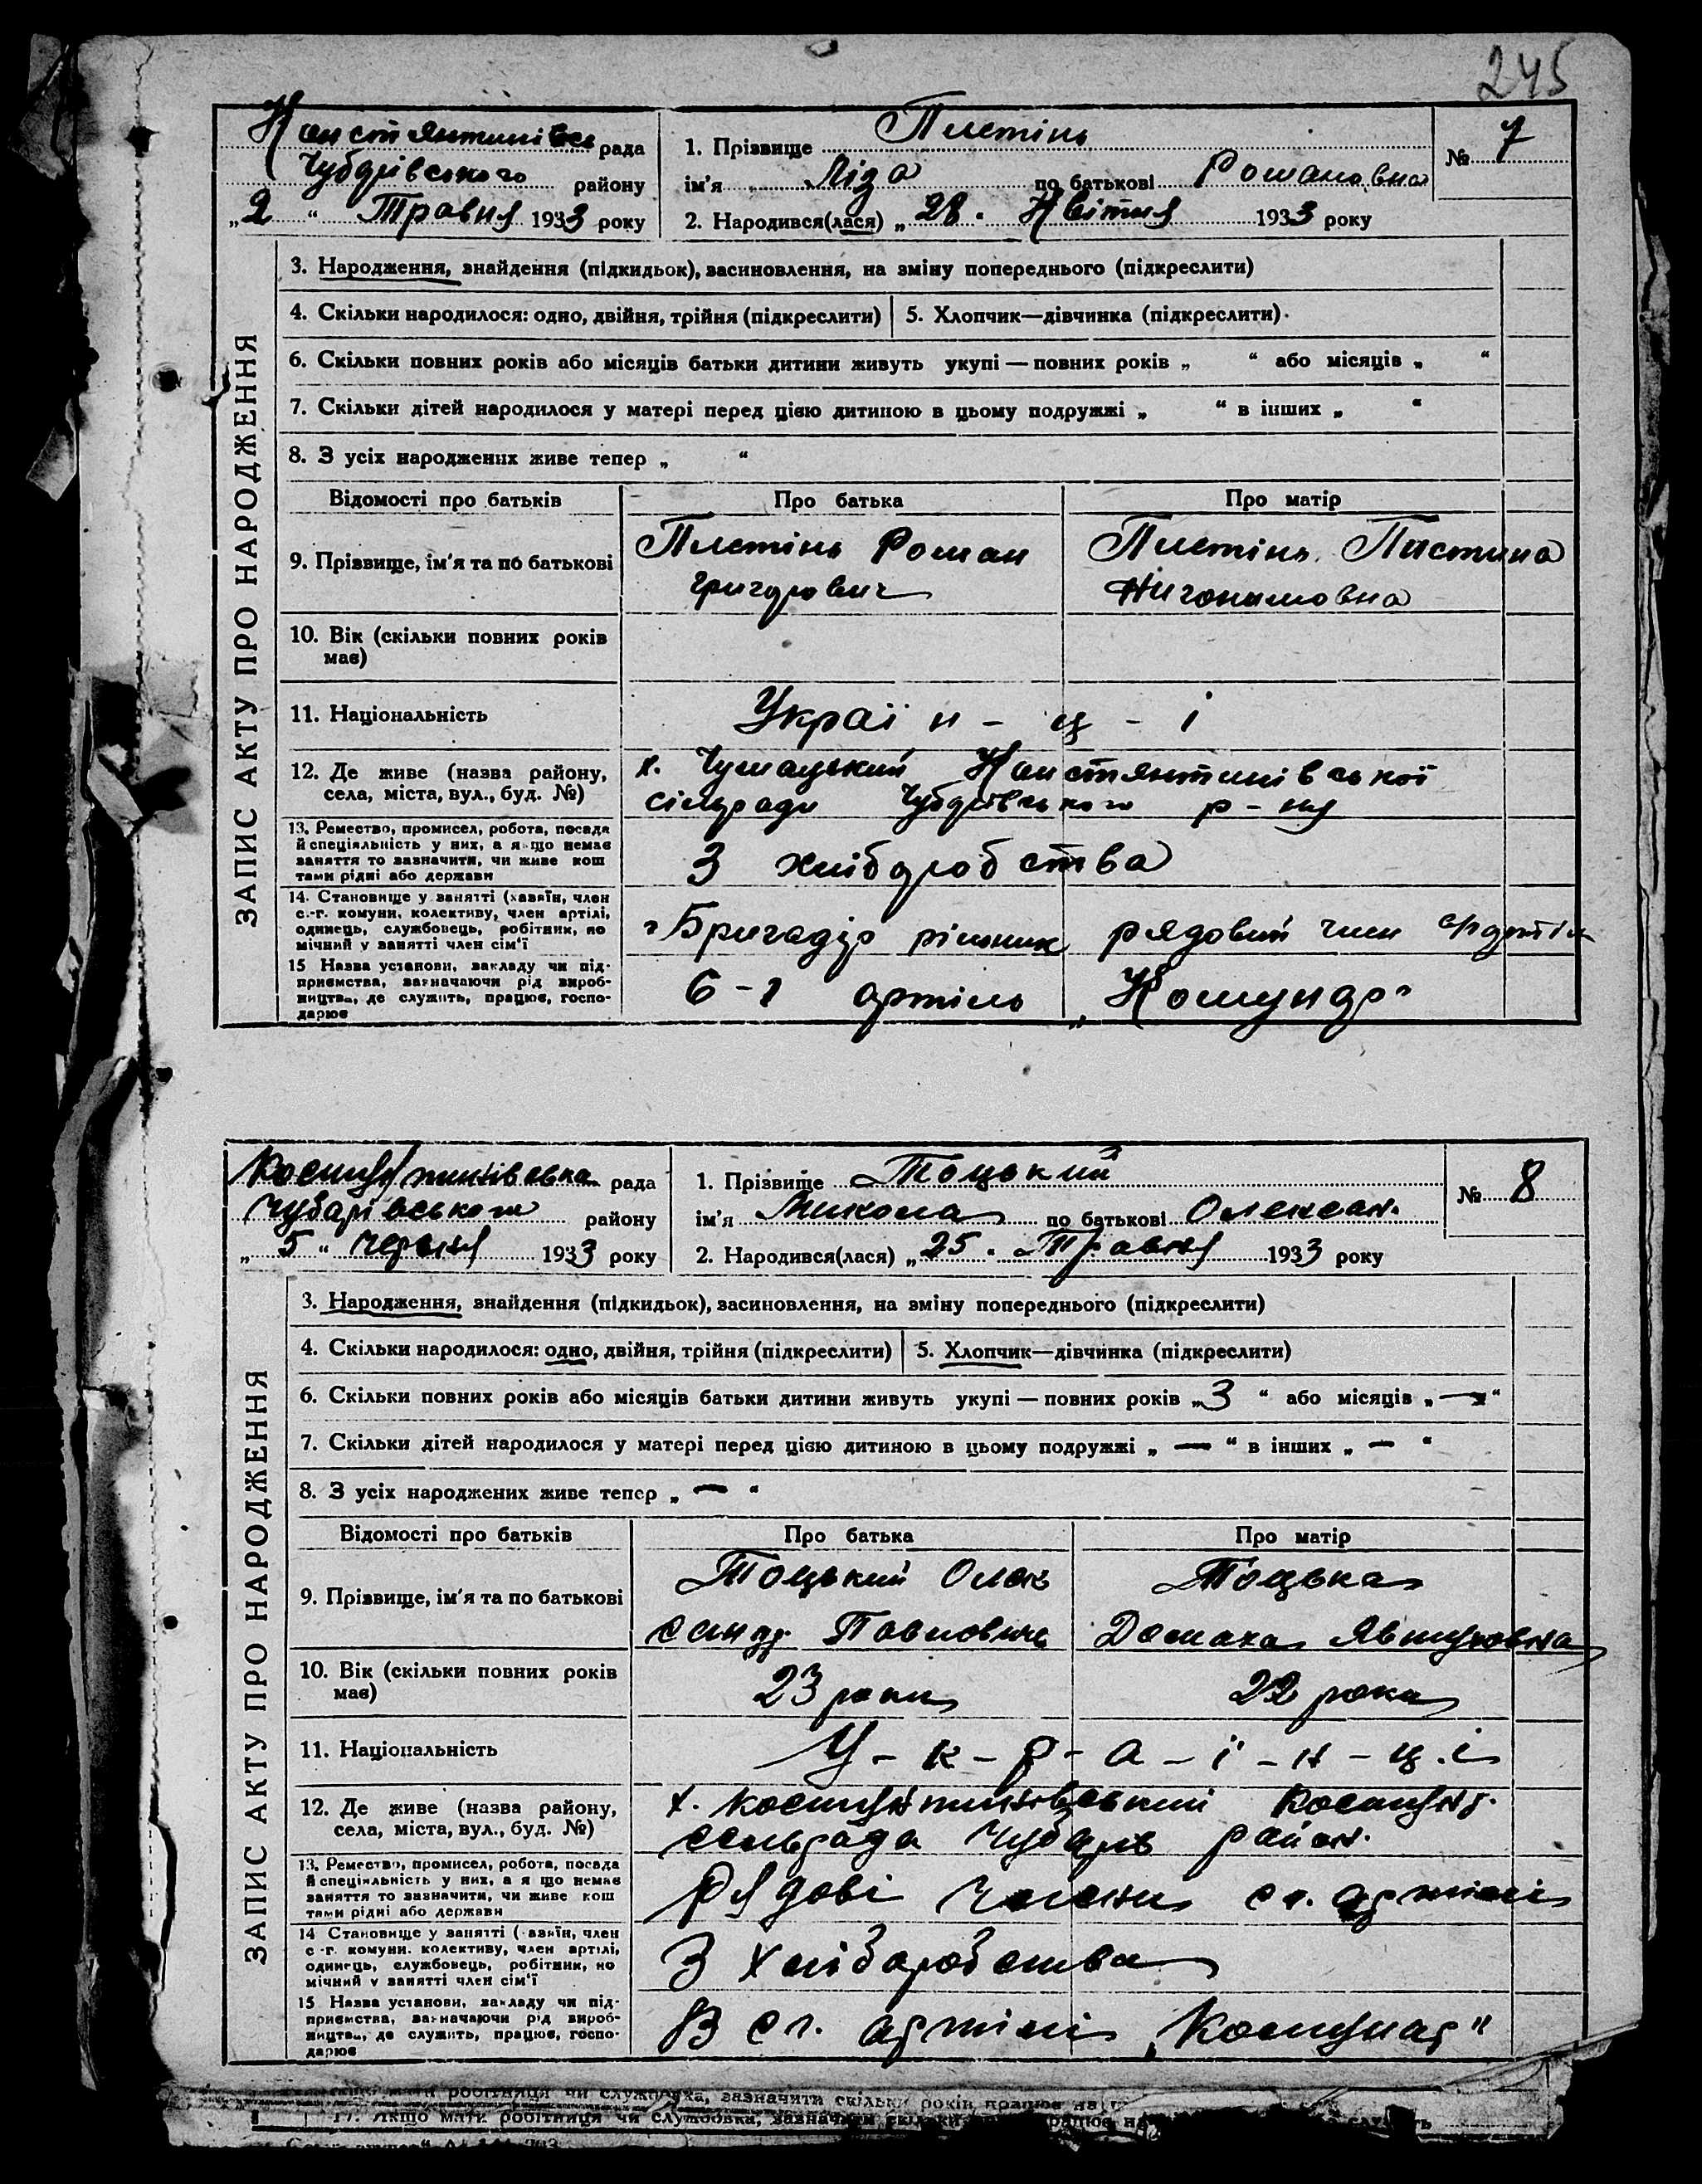 245
Констянтинівсь рада
Чубарівського району
„2“ Травня 1933 року
1. Прізвище Плетінь
ім'я Ліза по батькові Романовна
2. Народився(лася) „28“ Квітня 1933 року
№ 7
ЗАПИС АКТУ ПРО НАРОДЖЕННЯ
3. Народження, знайдення (підкидьок), засиновлення, на зміну попереднього (підкреслити)
4. Скільки народилося: одно, двійня, трійня (підкреслити) 5. Хлопчик—дівчинка (підкреслити).
6. Скільки повних років або місяців батьки дитини живуть укупі — повних років „ “ або місяців „ “
7. Скільки дітей народилося у матері перед цією дитиною в цьому подружжі „ “ в інших „ “
8. З усіх народжених живе тепер „ “
Відомості про батьків Про батька Про матір
9. Прізвище, ім'я та по батькові
Плетінь Роман
Григорович
Плетінь Пистина
10. Вік (скільки повних років
має)
11. Національність Украї н - ц - і
12. Де живе (назва району,
села, міста, вул., буд. №)
х. Чумацький Констянтинівської
сільради Чубарівського р-ну
13. Ремество, промисел, робота, посада
й спеціяльність у них, а якщо немає
заняття то зазначити, чи живе кош
тами рідні або держави
З хліборобства
14. Становище у занятті (хазяїн, член
с.-г. комуни, колективу, член артілі,
одинець, службовець, робітник, по
мічний у занятті член сім'ї
Бригадір рільник рядовий член
15 Назва установи, закладу чи під-
приємства, зазначаючи рід вироб-
ництва, де служить, працює, госпо-
дарює
артіль „Комунар“
рада
Чубарівського району
„5“ Червня 1933 року
1. Прізвище Тоцький
ім'я Микола по батькові Олексан.
2. Народився(лася) „25“ Травня 1933 року
№ 8
ЗАПИС АКТУ ПРО НАРОДЖЕННЯ
3. Народження, знайдення (підкидьок), засиновлення, на зміну попереднього (підкреслити)
4. Скільки народилося: одно, двійня, трійня (підкреслити) 5. Хлопчик—дівчинка (підкреслити)
6. Скільки повних років або місяців батьки дитини живуть укупі — повних років „3“ або місяців „—“
7. Скільки дітей народилося у матері перед цією дитиною в цьому подружжі „—“ в інших „—“
8. З усіх народжених живе тепер „—“
Відомості про батьків Про батька Про матір
9. Прізвище, ім'я та по батькові
Тоцький Олек
сандр Павлович
Тоцька
Домаха
10. Вік (скільки повних років
має)
23 роки 22 роки
11. Національність У - к - р - а - ї - н - ц - і
12. Де живе (назва району,
села, міста, вул., буд. №)
х.
сельрада Чубарів район.
13. Ремество, промисел, робота, посада
й спеціяльність у них, а якщо немає
заняття то зазначити, чи живе кош
тами рідні або держави
Рядові члени с г. артілі
14 Становище у занятті (хазяїн, член
с.-г. комуни, колективу, член артілі,
одинець, службовець, робітник, по
мічний у занятті член сім'ї
З хліборобства
15 Назва установи, закладу чи під-
приємства, зазначаючи рід вироб-
ництва, де служить, працює, госпо-
дарює
В с г. артілі „Комунар“
робітниця чи службовка, зазначити скільки років працює
17. Якщо мати робітниця чи службовка, зазначити